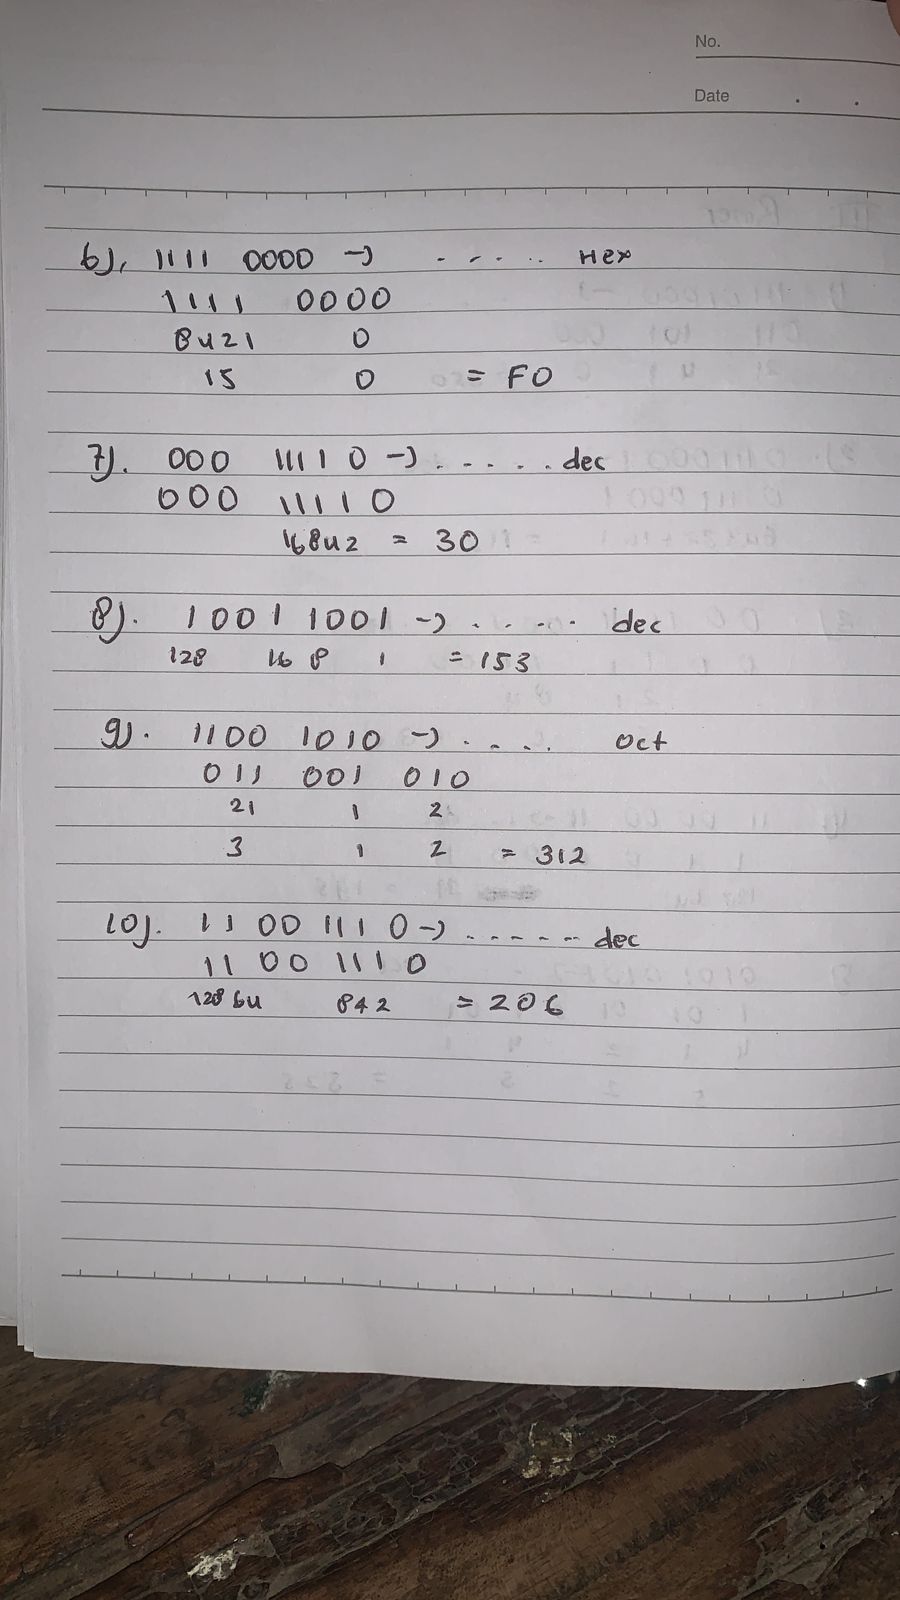 No.
Date
6). 1111 0000 → ..... Hex
1111 0000
8421 0
15 0 = F0
7). 000 11110 → ..... dec
000 11110
16842 = 30
8). 1001 1001 → ..... dec
128 16 8 1 = 153
9). 1100 1010 → .... Oct
011 001 010
21 1 2
3 1 2 = 312
10). 11 00 111 0 → ...... dec
11 00 111 0
128 64 842 = 206